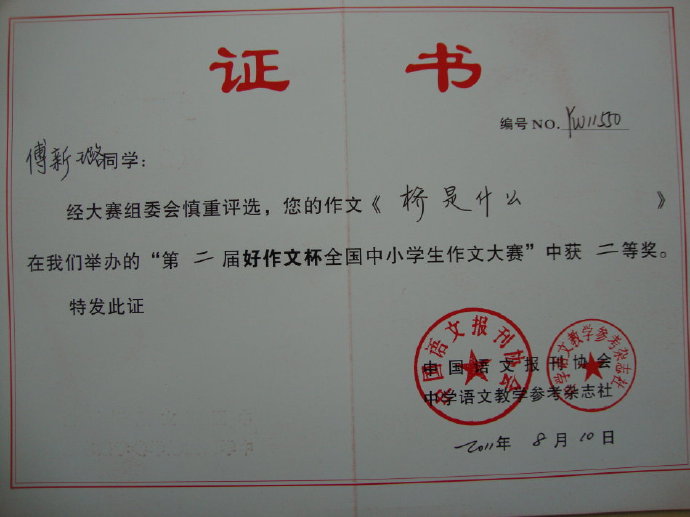 证 书
编号 NO. YW11550
傅新璐同学：
经大赛组委会慎重评选，您的作文《 桥是什么 》
在我们举办的“第 二 届好作文杯全国中小学生作文大赛”中获 二等奖。
特发此证
中国语文报刊协会
中学语文教学参考杂志社
中国语文报刊协会
中学语文教学参考杂志社
2011年 8 月 10 日